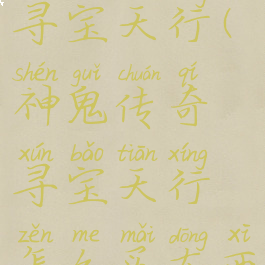 寻宝天行(
shén guǐ chuán qí
神鬼传奇
xún bǎo tiān xíng
寻宝天行
zěn me mǎi dōng xī